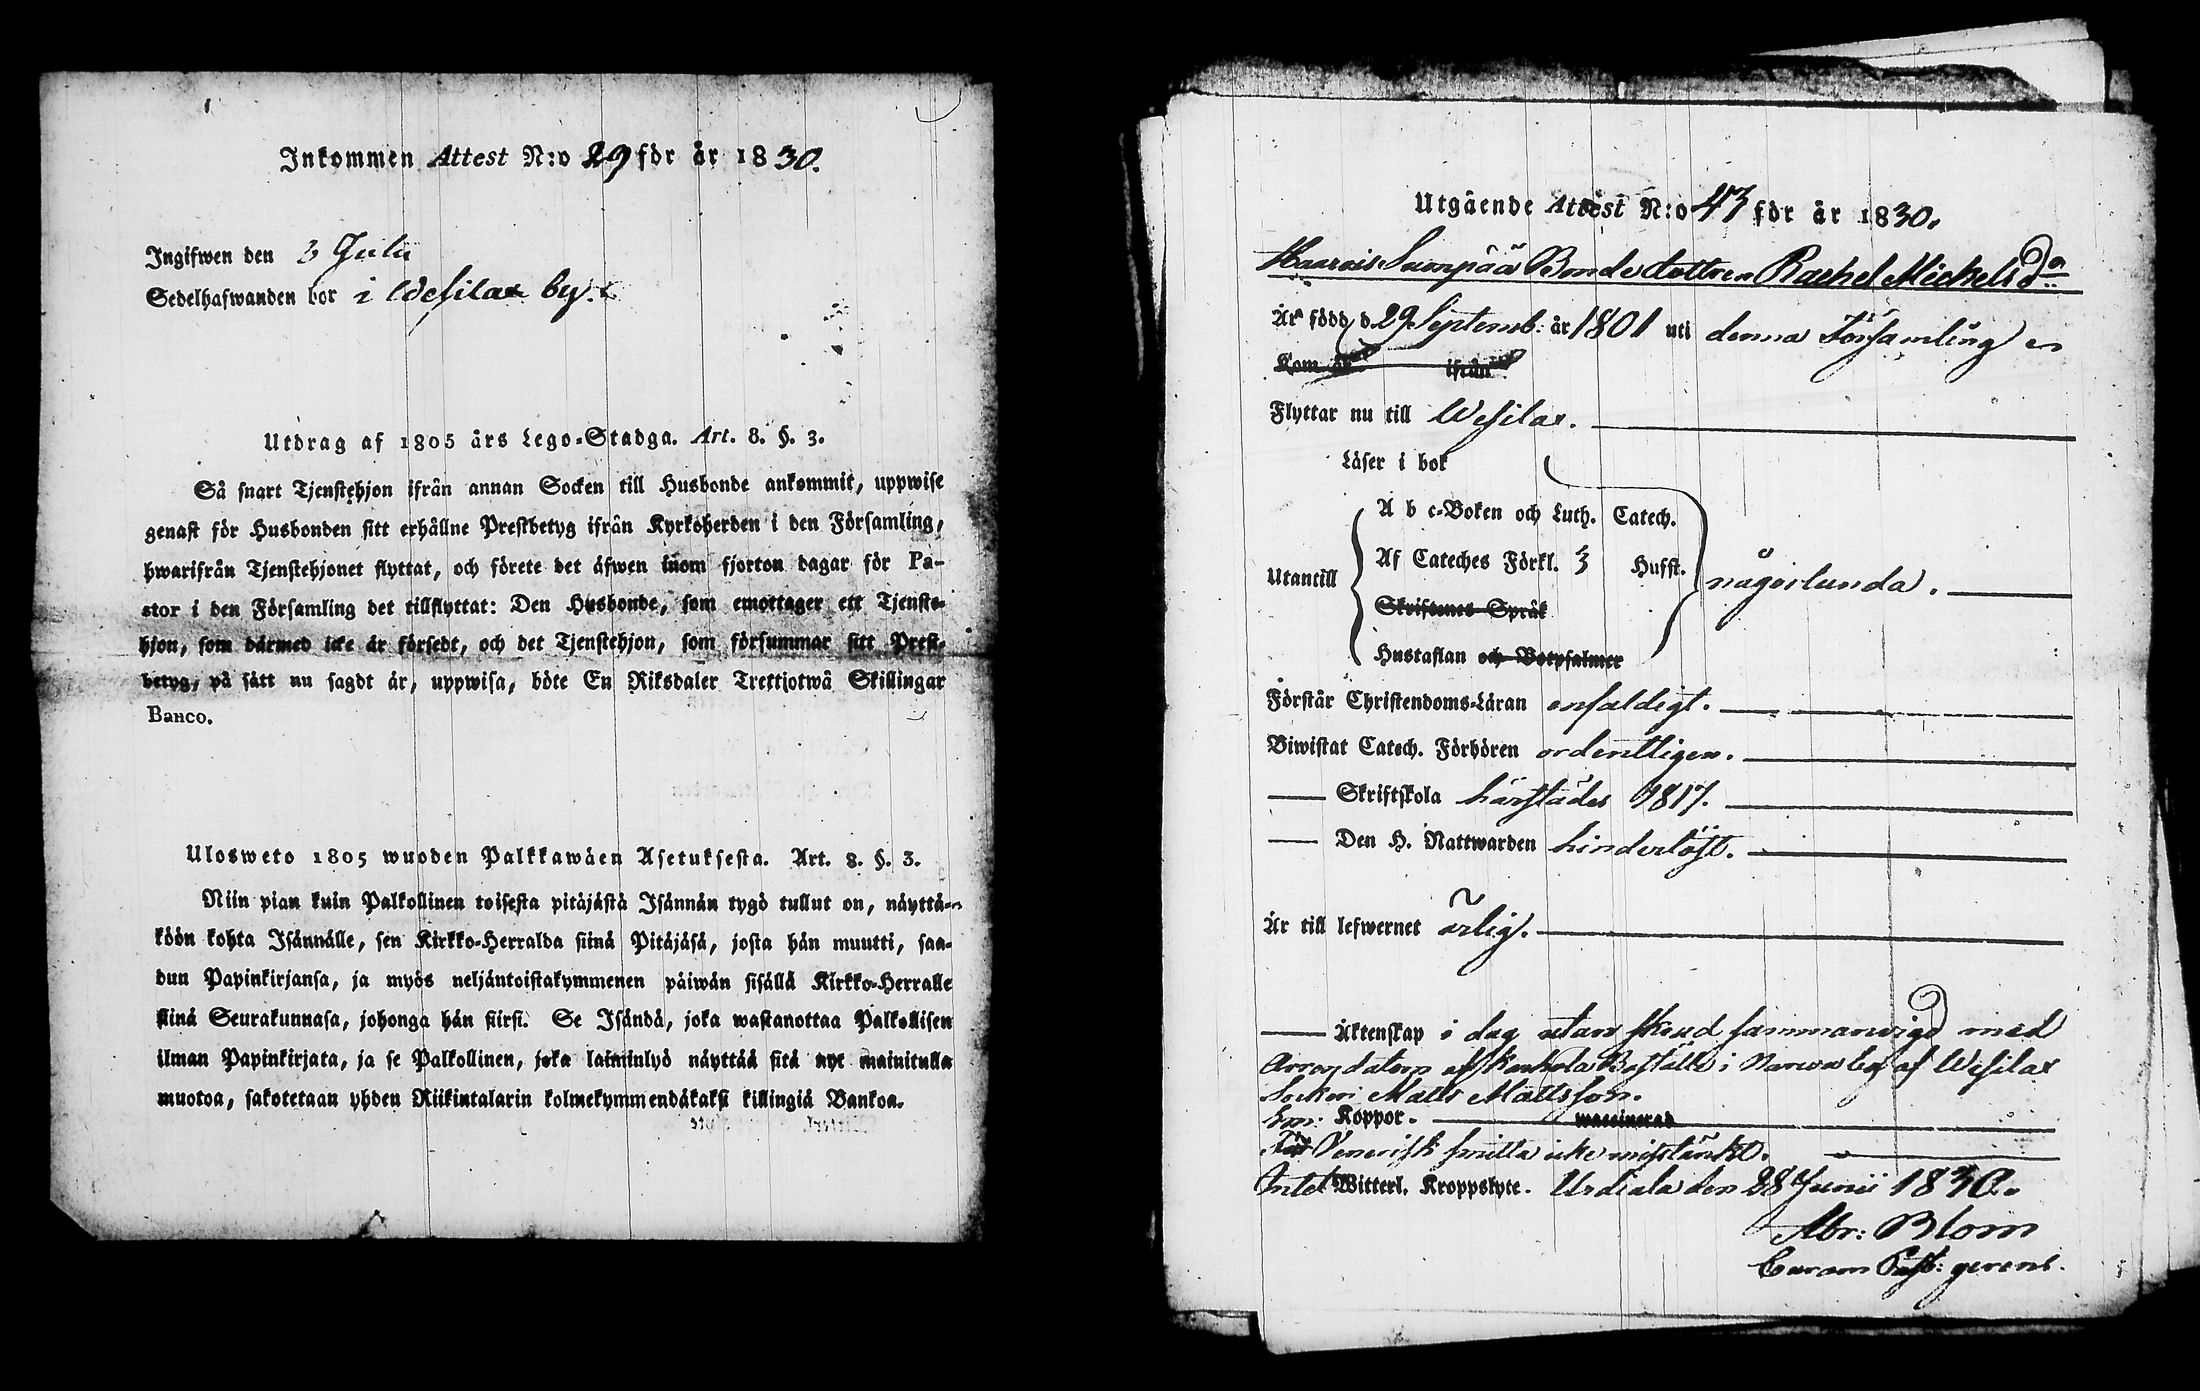 Inkommen Attest N:o 29 för år 1830.
Ingifwen den 3 Julii
Sedelhafwanden bor i Wesilax by.
Utdrag af 1805 års Lego-Stadga. Art. 8. §. 3.
Så snart Tjenstehjon ifrån annan Socken till Husbonde ankommit, uppwise
genast för Husbonden sitt erhållne Prestbetyg ifrån Kyrkoherden i den Församling,
hwarifrån Tjenstehjonet flyttat, och förete det äfwen inom fjorton dagar för Pa-
stor i den Församling det tillflyttat: Den Husbonde, som emottager ett Tjenste-
hjon, som därmed icke är försedt, och det Tjenstehjon, som försummar sitt Prest-
betyg, på sätt nu sagdt är, uppwisa, böte En Riksdaler Trettjotwå Skillingar
Banco.
Ulosweto 1805 wuoden Palkkawäen Asetuksesta. Art. 8. §. 3.
Niin pian kuin Palkollinen toisesta pitäjästä Isännän tygö tullut on, näyttä-
köön kohta Isännälle, sen Kirkko-Herralda siinä Pitäjäsä, josta hän muutti, saa-
dun Papinkirjansa, ja myös neljäntoistakymmenen päiwän sisällä Kirkko-Herralle
siinä Seurakunnasa, johonga hän siirsi. Se Isändä, joka wastanottaa Palkollisen
ilman Papinkirjata, ja se Palkollinen, joka laiminlyö näyttää sitä nyt mainitulla
muotoa, sakotetaan yhden Riikintalarin kolmekymmendäkaksi killingiä Bankoa.
Utgående Attest N:o 43 för år 1830.
Haarois Sampää Bonde dottren Rachel Mickelsdr
Är född d. 29 Septemb: år 1801 uti denna Församling
Kom år ifrån
Flyttar nu till Wesilax.
Läser i bok
Utantill
A b c-Boken och Luth. Catech.
Af Cateches Förkl. 3 Hufst.
Skriftenes Språk
Hustaflan och Botpsalmer
någorlunda.
Förstår Christendoms-Läran enfaldigt.
Biwistat Catech. Förhören ordentligen.
Skriftskola härstädes 1817.
Den H. Nattwarden hinderlöst.
Är till lefwernet ärlig.
Äktenskap i dag utan skrud sammanvigd med
Arrendatorn af Boställe i Narwa by af Wesilax
Socken Matts Mattsson.
Koppor. waccinerad
Venerisk smitta icke misstänkt.
Intet Witterl. Kroppslyte. Urdiala den 28 Junii 1830.
Abr: Blom
Curam Past: gerens.